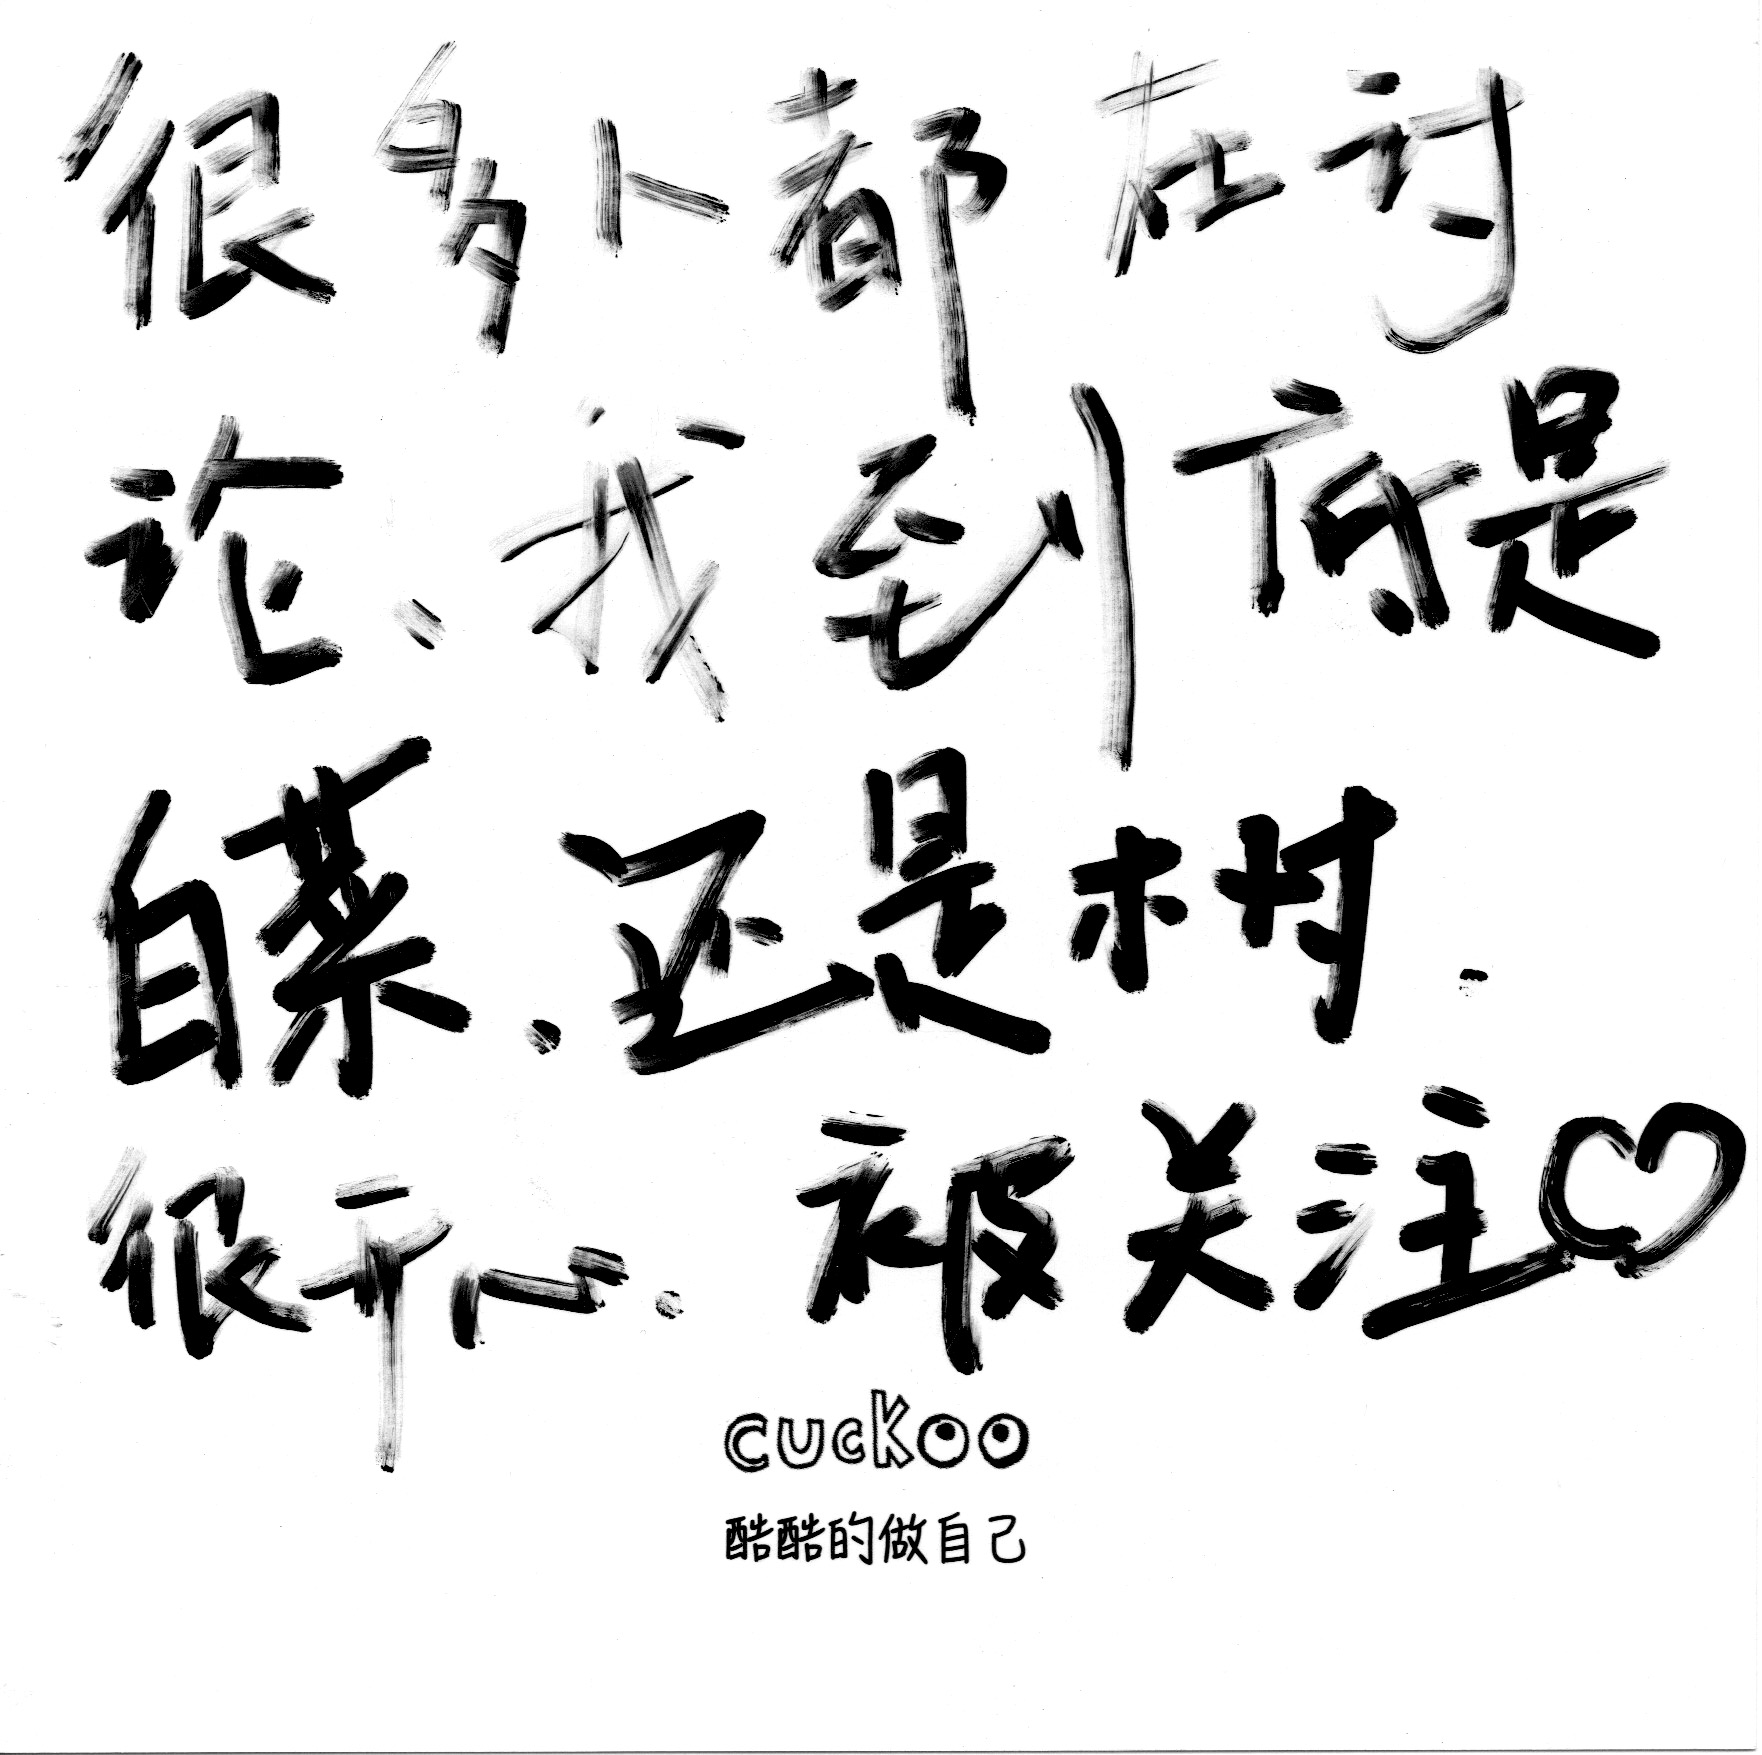 很多人都在讨
论、我到底是
白菜、还是树.
很开心. 被关注♡
cuckoo
酷酷的做自己